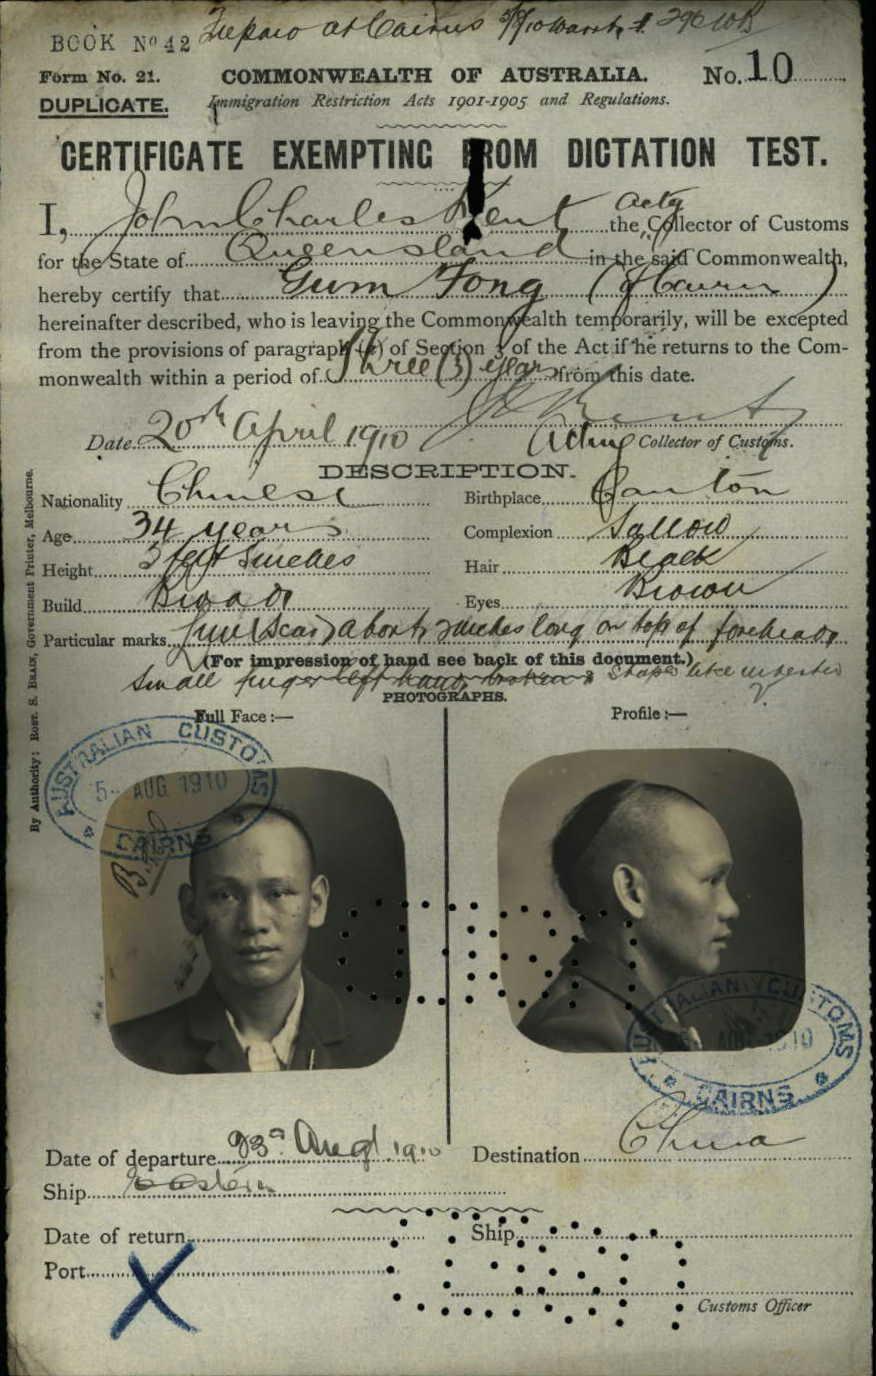 BOOK Nº 42 at Cairns
Form No. 21. COMMONWEALTH OF AUSTRALIA. No. 10
DUPLICATE. Immigration Restriction Acts 1901-1905 and Regulations.
CERTIFICATE EXEMPTING FROM DICTATION TEST.
I, John Charles Kent Actg the Collector of Customs
for the State of Queensland in the said Commonwealth,
hereby certify that Gum Fong (of Cairns)
hereinafter described, who is leaving the Commonwealth temporarily, will be excepted
from the provisions of paragraph (a) of Section 3 of the Act if he returns to the Com-
monwealth within a period of Three (3) years from this date.
Date 20th April 1910 Acting Collector of Customs.
DESCRIPTION.
Nationality Chinese Birthplace Canton
Age 34 years Complexion Sallow
Height 5 feet 5 inches Hair Black
Build Broad Eyes Brown
Particular marks (Scar) about 2 inches long on top of forehead
(For impression of hand see back of this document.)
small finger left hand broken shape like inverted V
PHOTOGRAPHS.
Full Face :— Profile :—
AUSTRALIAN CUSTOMS
5 - AUG 1910
CAIRNS
AUSTRALIAN CUSTOMS
AUG 1910
CAIRNS
Date of departure 3rd Augt 1910 Destination China
Ship Eastern
Date of return Ship
Port
Customs Officer
By Authority: ROBT. S. BRAIN, Government Printer, Melbourne.